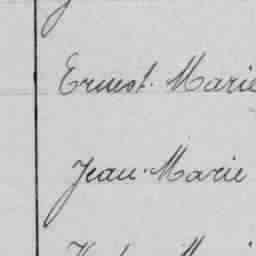 Ernest. Marie
Jean. Marie